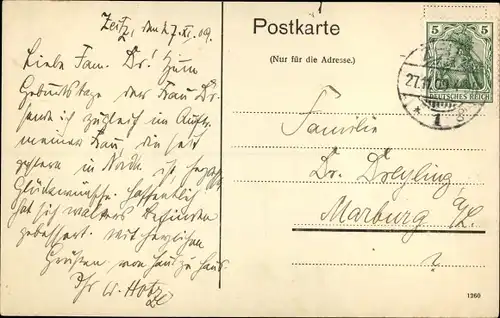 Zeitz, den 27. XI. 09.
Liebe Fam. Dr.! Zum
Geburtstage der Frau Dr.
sende ich zugleich im Auftr.
meiner Frau, die seit
gestern in ist, herzl.
Glückwünsche. Hoffentlich
hat sich Befinden
gebessert. Mit herzlichen
Grüßen von Haus zu Haus
Ihr W. Hotze
Postkarte
(Nur für die Adresse.)
5 5
DEUTSCHES REICH
27.11.09
* 1
Familie
Dr. Dreyling
Marburg a/L.
1260